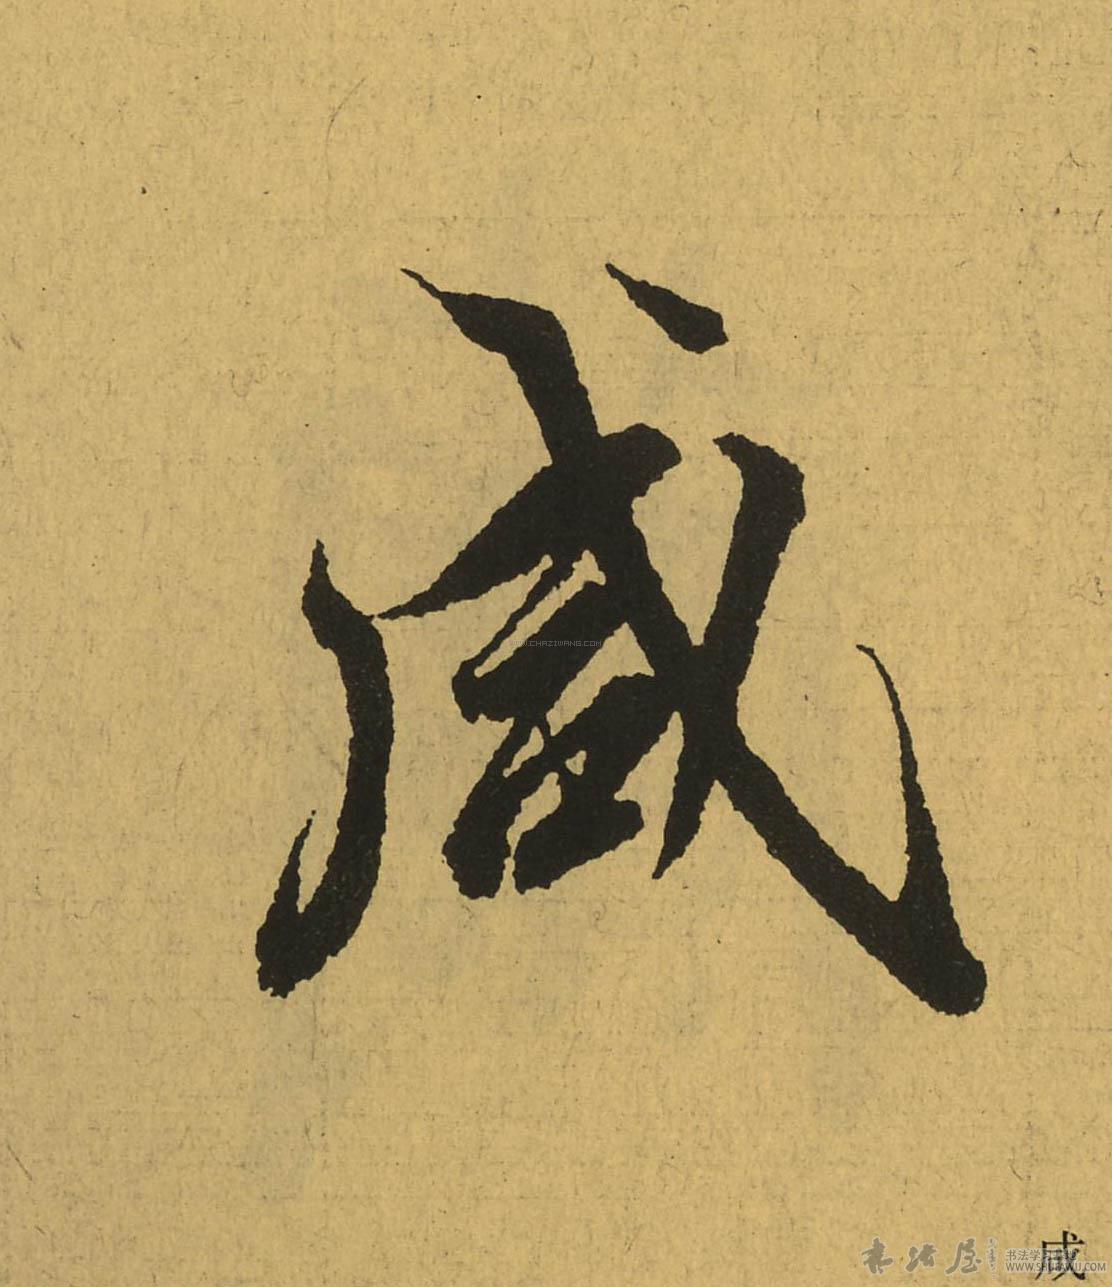 咸
WWW.CHAZIWANG.COM
咸
书法屋
书法学习基地
WWW.SHUFAWU.COM